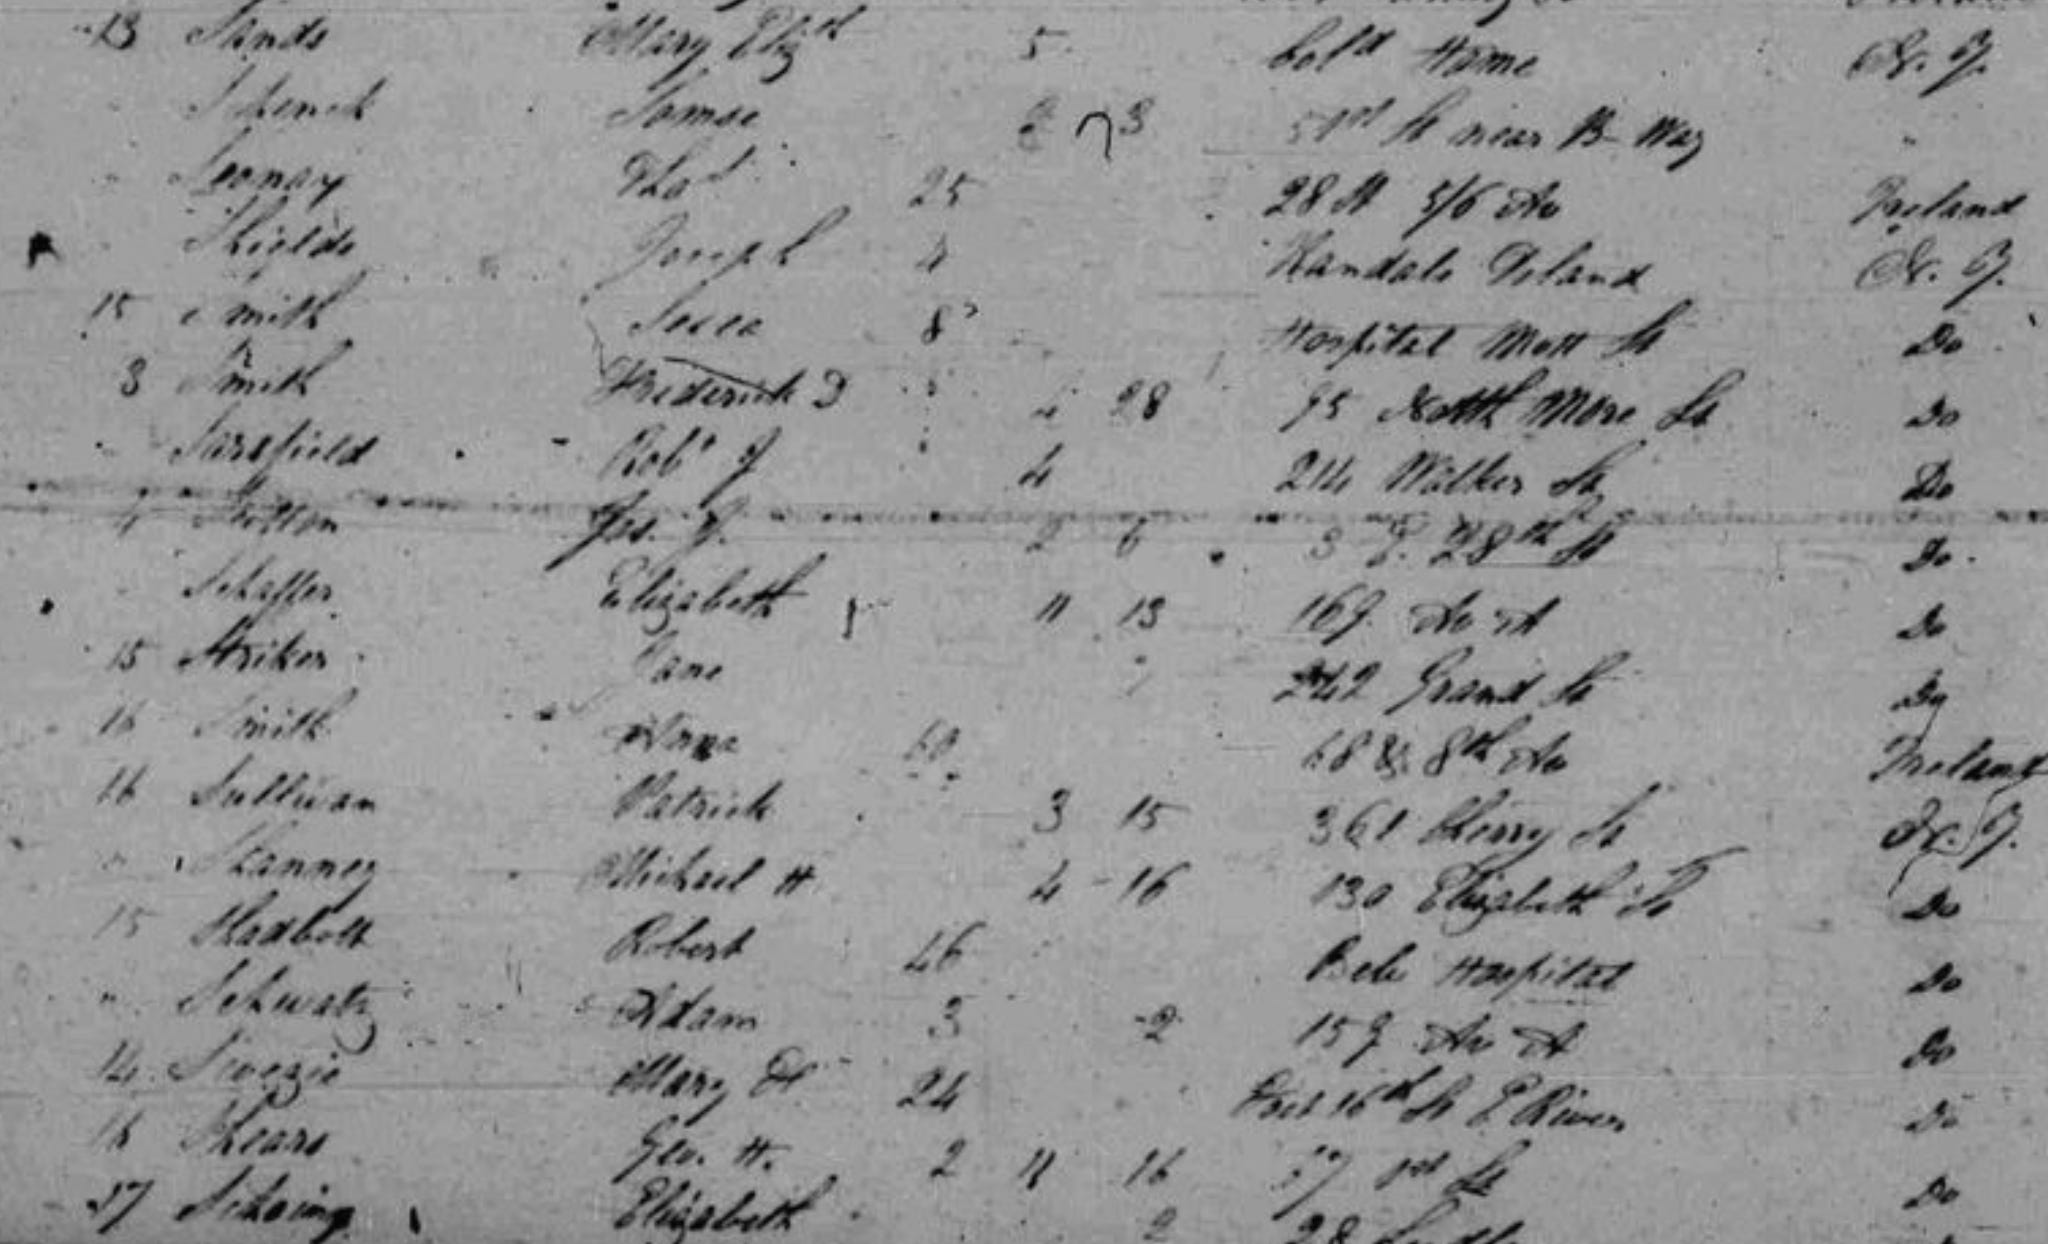 13 Sands Mary Elizth 5 Cold Home N. Y.
" Schenck 3 51st St near B-Way "
" Thos 25 28 St 5/6 Av Ireland
" Shields Joseph 4 Randals Island N. Y.
15 Smith 8 Hospital Mott St Do
3 Smith Frederick D 4 28 95 North More St Do
" Sarsfield Robt J 4 214 Walker St Do
4 Jas. 2 6 3 E. 28th St Do
" Schaffer Elizabeth 11 13 169 Av A Do
15 Striker Jane 242 Grand St Do
16 Smith 60 8th Av Ireland
16 Sullivan Patrick 3 15 361 Cherry St N. Y.
" Michael H 4 16 130 Elizabeth St Do
15 Shadbolt Robert 46 Hospital Do
" Schwatz Adam 3 2 159 Av A Do
14 Swezie Mary 24 16th St E River Do
16 Shears Geo. H. 2 11 16 37 1st St Do
17 Elizabeth 2 28